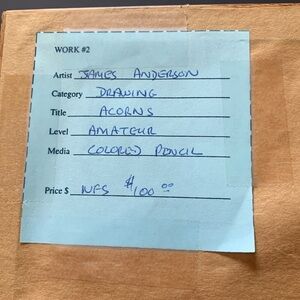 WORK #2
Artist JAMES ANDERSON
Category DRAWING
Title ACORNS
Level AMATEUR
Media COLORED PENCIL
Price $ NFS $100 00